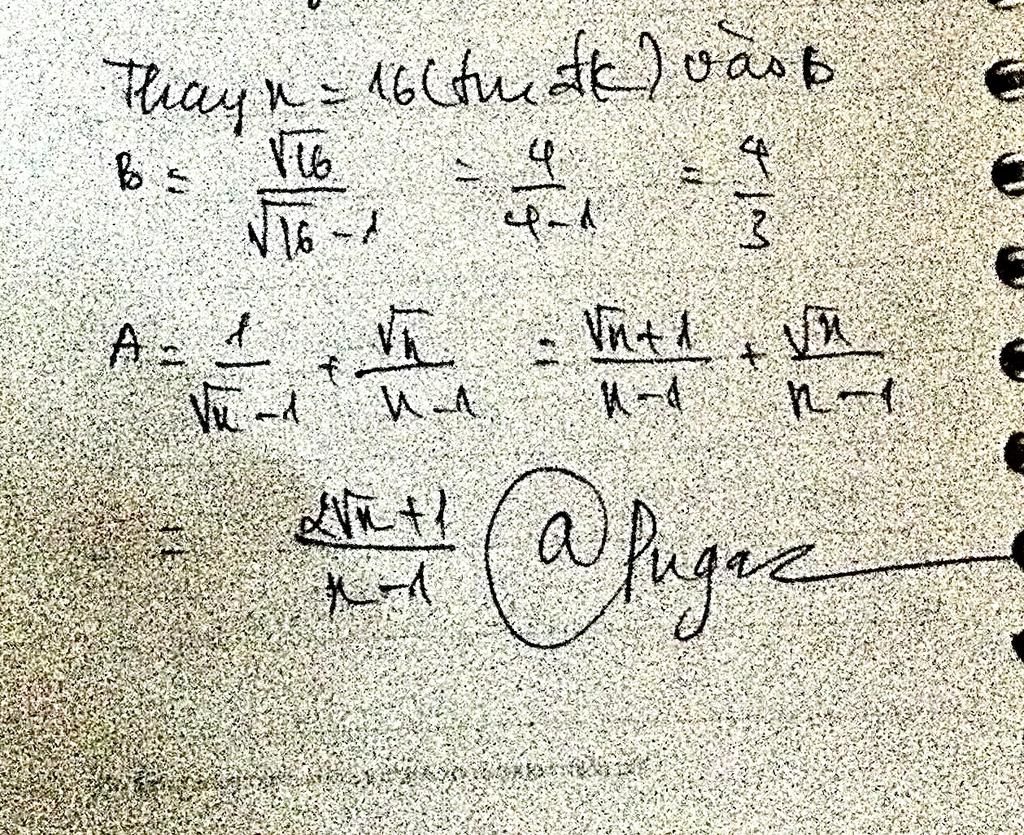 Thay x = 16 (tm đk) vào B
B = √16/(√16 - 1) = 4/(4 - 1) = 4/3
A = 1/(√x - 1) + √x/(x - 1) = (√x + 1)/(x - 1) + √x/(x - 1)
= (2√x + 1)/(x - 1) @Pugaz